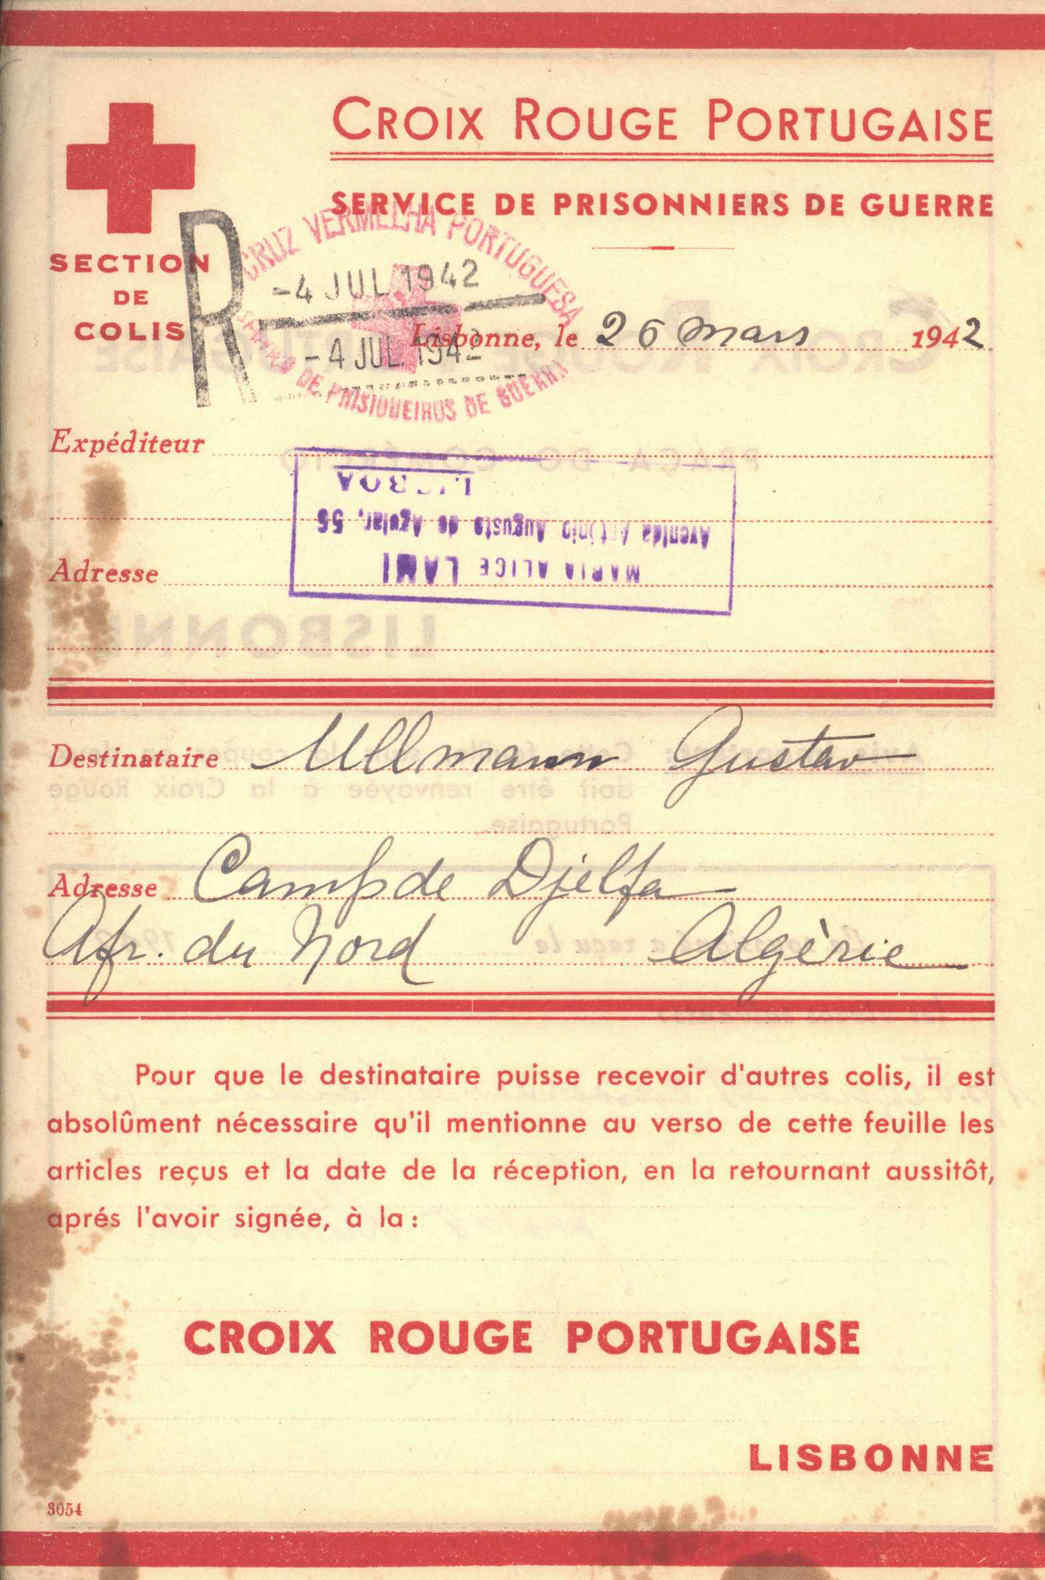 CROIX ROUGE PORTUGAISE
SERVICE DE PRISONNIERS DE GUERRE
SECTION
DE
COLIS
R
CRUZ VERMELHA PORTUGUESA
-4 JUL 1942
-4 JUL. 1942
DE PRISIONEIROS DE GUERRA
Lisbonne, le 26 Mars 1942
Expéditeur
MARIA ALICE LAMI
Avenida António Augusto de Aguiar, 56
LISBOA
Adresse
Destinataire Ullmann Gustav
Adresse Camp de Djelfa
Afr. du Nord Algèrie
Pour que le destinataire puisse recevoir d'autres colis, il est
absolûment nécessaire qu'il mentionne au verso de cette feuille les
articles reçus et la date de la réception, en la retournant aussitôt,
aprés l'avoir signée, à la:
CROIX ROUGE PORTUGAISE
LISBONNE
3054